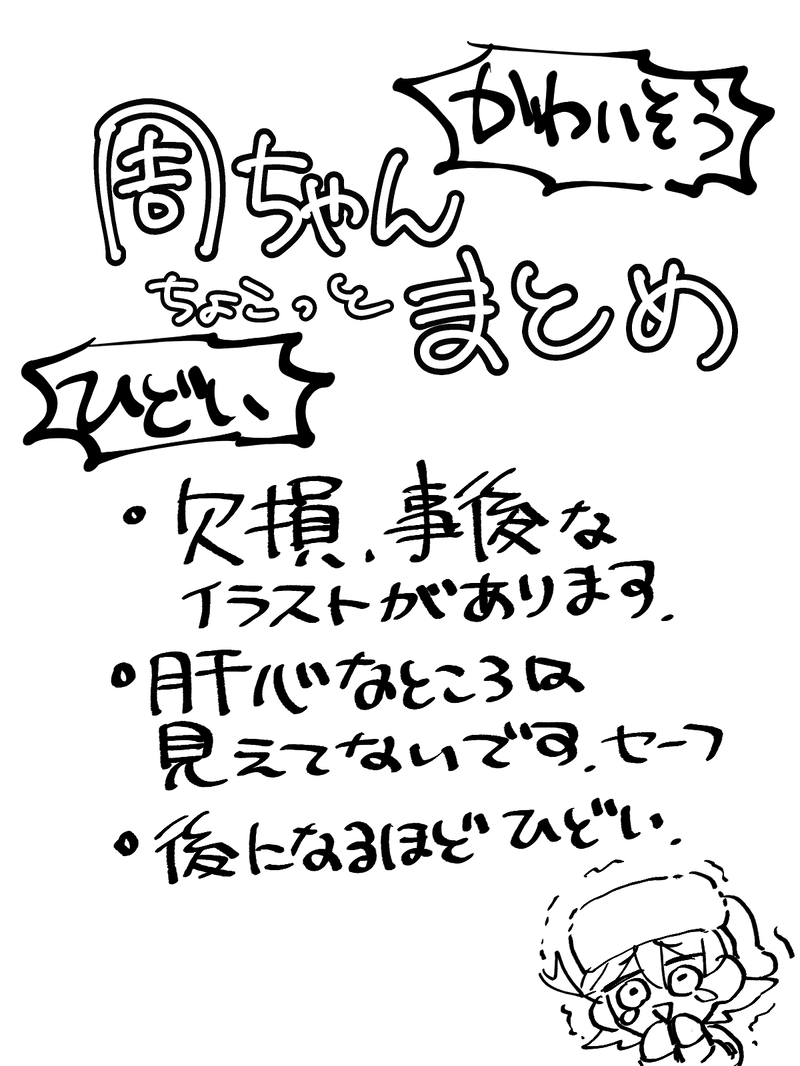 かわいそう
周ちゃん
ちょこっとまとめ
ひどい
・欠損、事後な
イラストがあります.
・肝心なところは
見えてないです.セーフ
・後になるほどひどい.